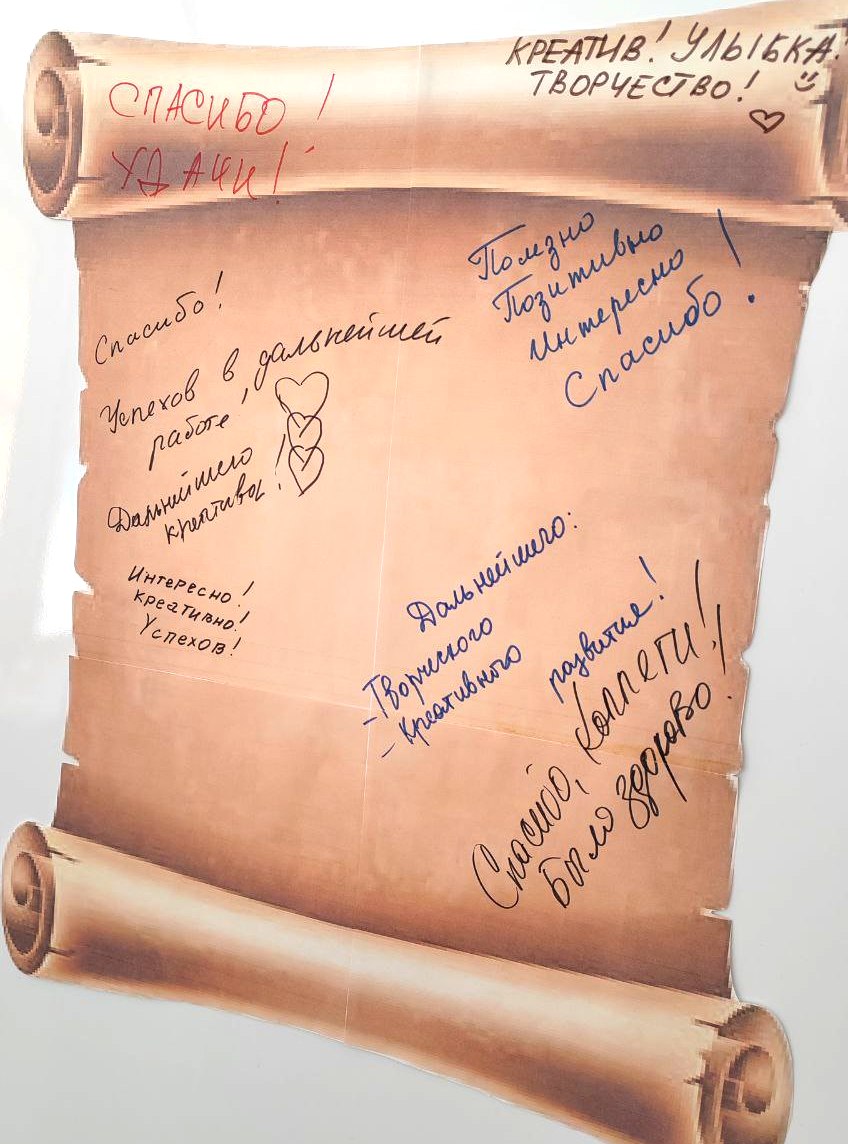 СПАСИБО!
УДАЧИ!
КРЕАТИВ! УЛЫБКА!
ТВОРЧЕСТВО!
Полезно
Позитивно
Интересно
Спасибо!
Спасибо!
Успехов в дальнейшей
работе!
Дальнейшего
креатива!
Интересно!
Креативно!
Успехов!
Дальнейшего:
-Творческого
-Креативного развития!
Спасибо, коллеги!
Было здорово!